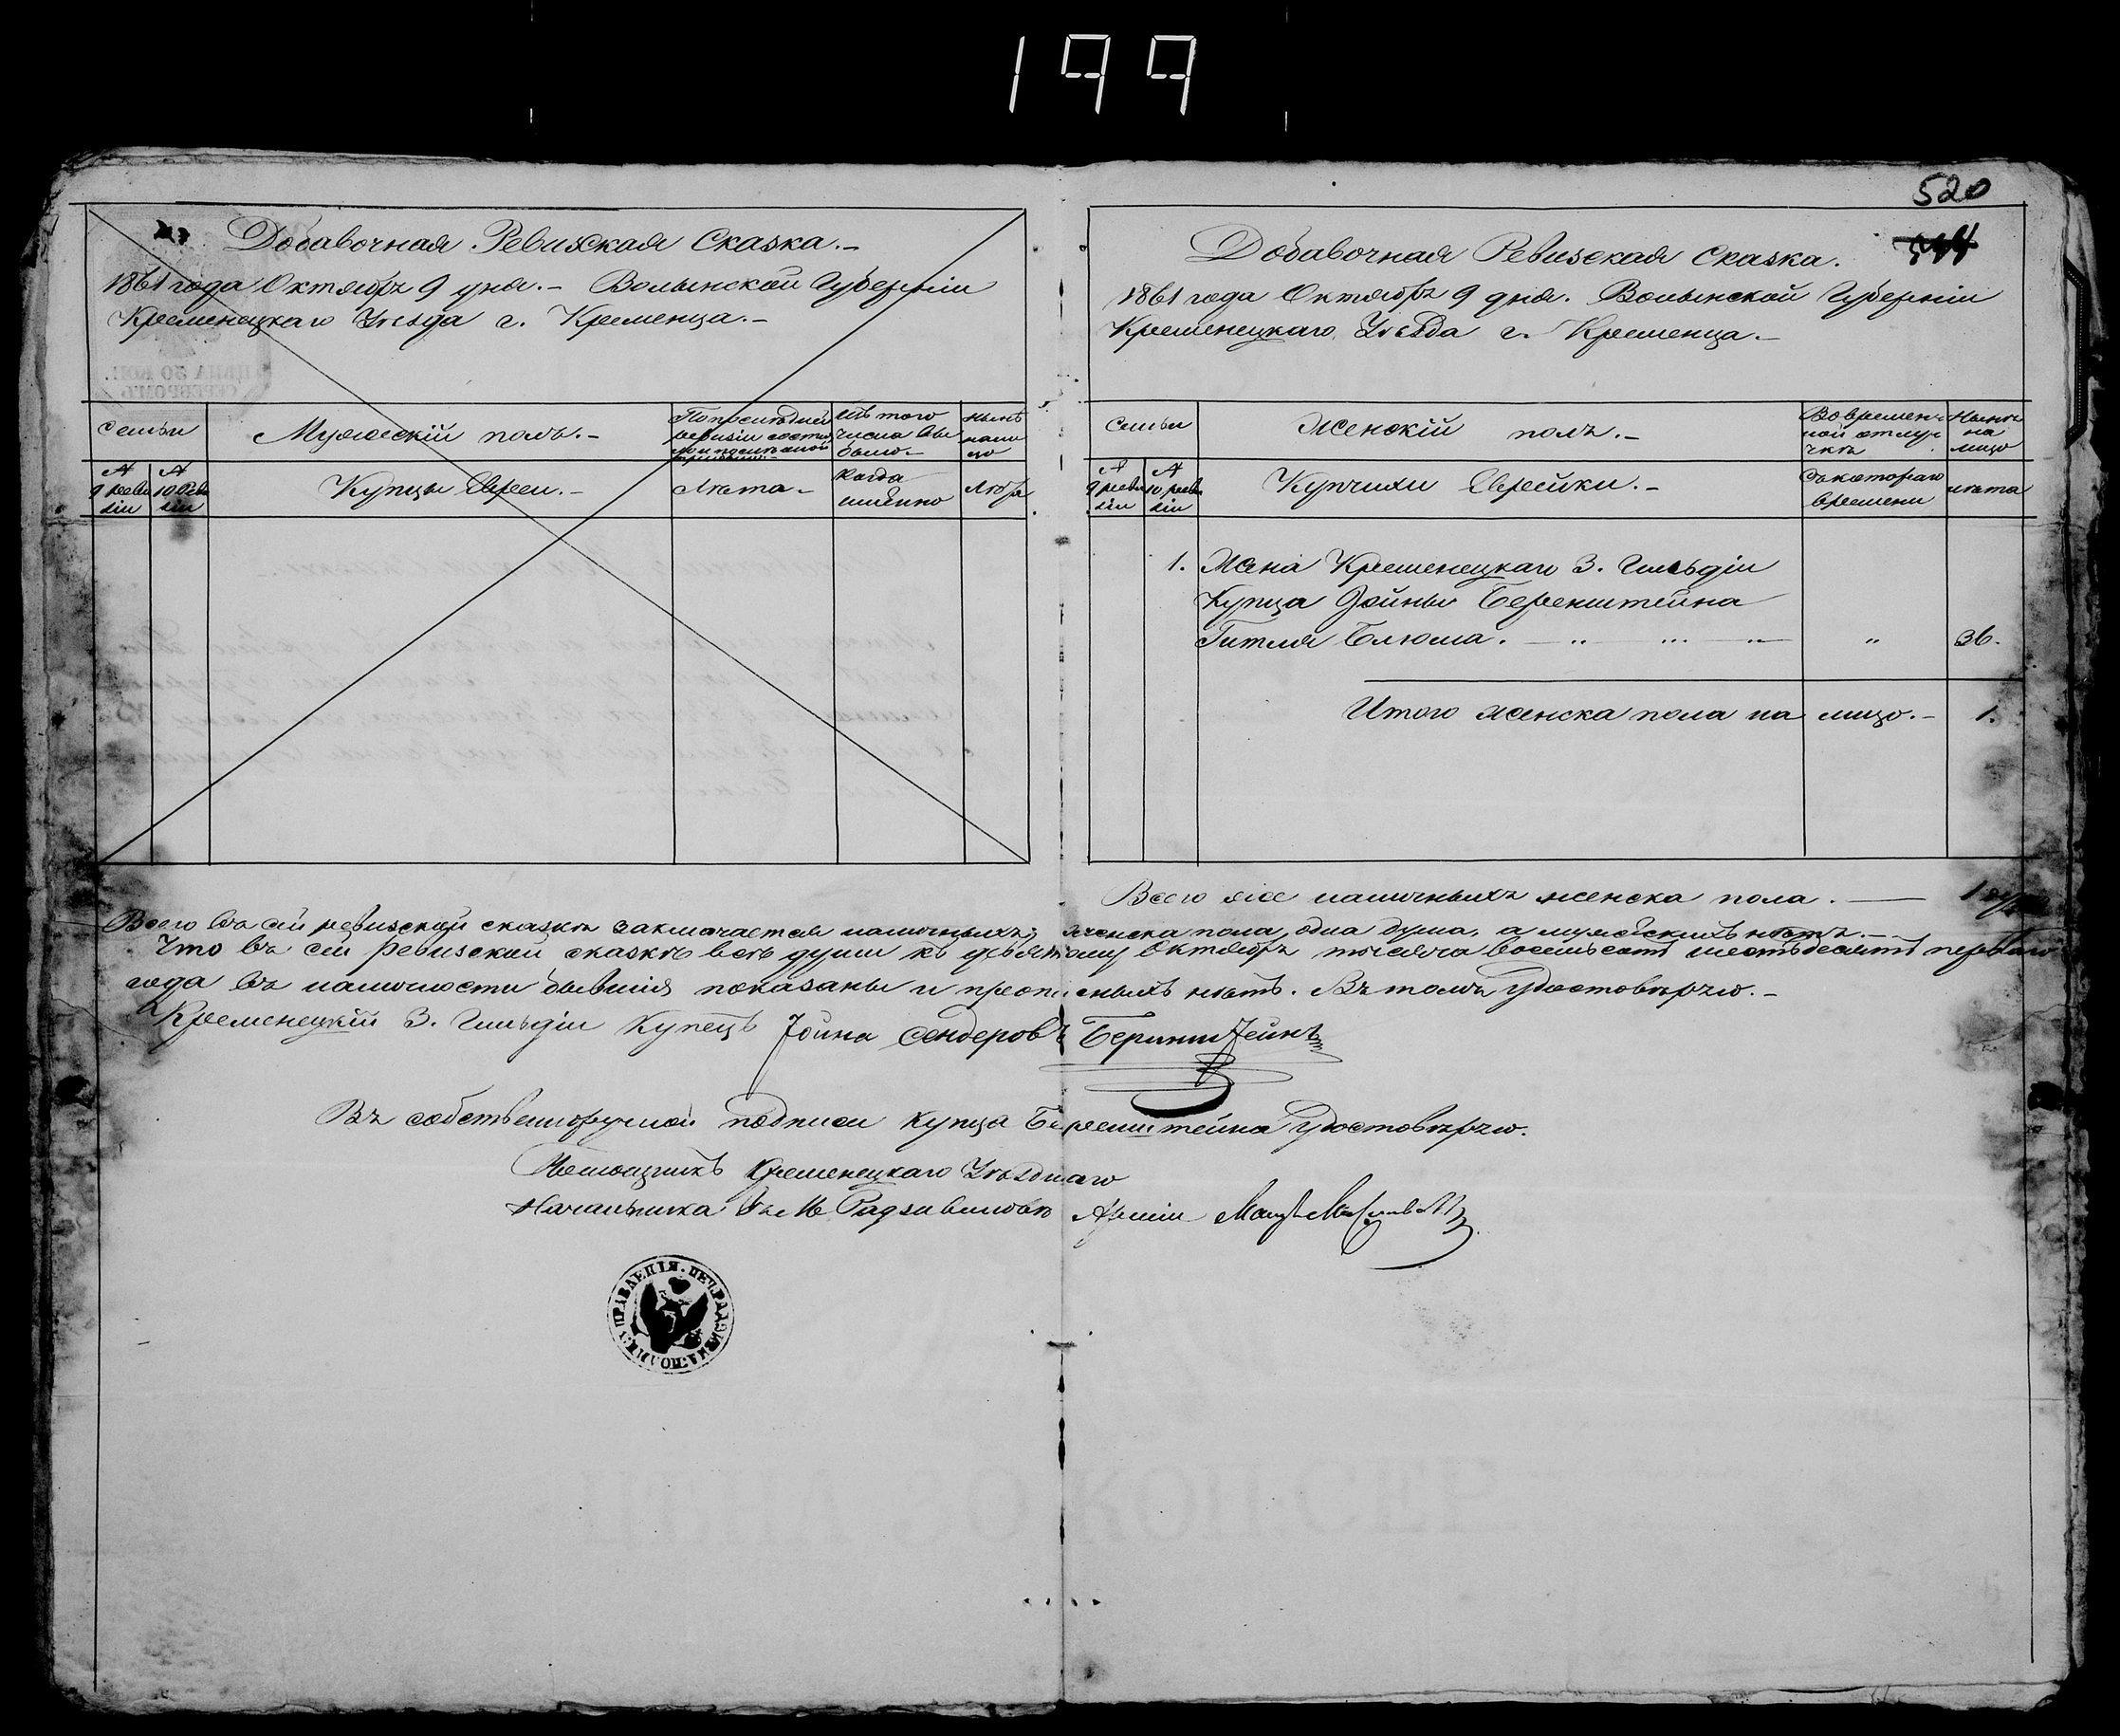 199
Добавочная Ревизская Сказка.-
1861 года Октября 9 дня.- Волынской Губерніи
Кременецкаго Уѣзда г. Кременца.-
Семьи
Мужескій полъ.-
По послѣдней ревизіи состояло и послѣ оной прибыло.-
Изъ того числа выбыло.-
Нынѣ на лицо
№ 9 ревизіи
№ 10 Ревизіи
Купцы Евреи.-
Лѣта.-
Когда именно
Лѣта
520
Добавочная Ревизская Сказка.
1861 года Октября 9 дня. Волынской Губерніи
Кременецкаго Уѣзда г. Кременца.-
Семьи
Женскій полъ.-
Во временной отлучкѣ
Нынѣ на лицо
№ 9 ревизіи
№ 10 ревизіи
Купчихи Еврейки.-
Съ котораго времени
лѣта
1. Жена Кременецкаго 3. Гильдіи
Купца Іойны Беренштейна
Гитля Блюма. " 36.
Итого женска пола на лицо.- 1.
Всего же наличныхъ женска пола. — 1
Всего въ сей ревизской сказкѣ заключается наличныхъ; женска пола, одна душа, а мужескихъ нѣтъ.-
Что въ сей ревизской сказкѣ всѣ души къ девятому Октября тысяча восемьсотъ шестьдесятъ перваго
года въ наличности бывшія показаны и прописныхъ нѣтъ. Въ томъ Удостовѣряю.-
Кременецкій 3. Гильдіи Купецъ Іойна Сендеровъ Беринштейнъ
Въ собственоручной подписи купца Беренштейна Удостовѣряю.
Помощникъ Кременецкаго Уѣзднаго
Начальника въ М Радзивиловѣ Арміи